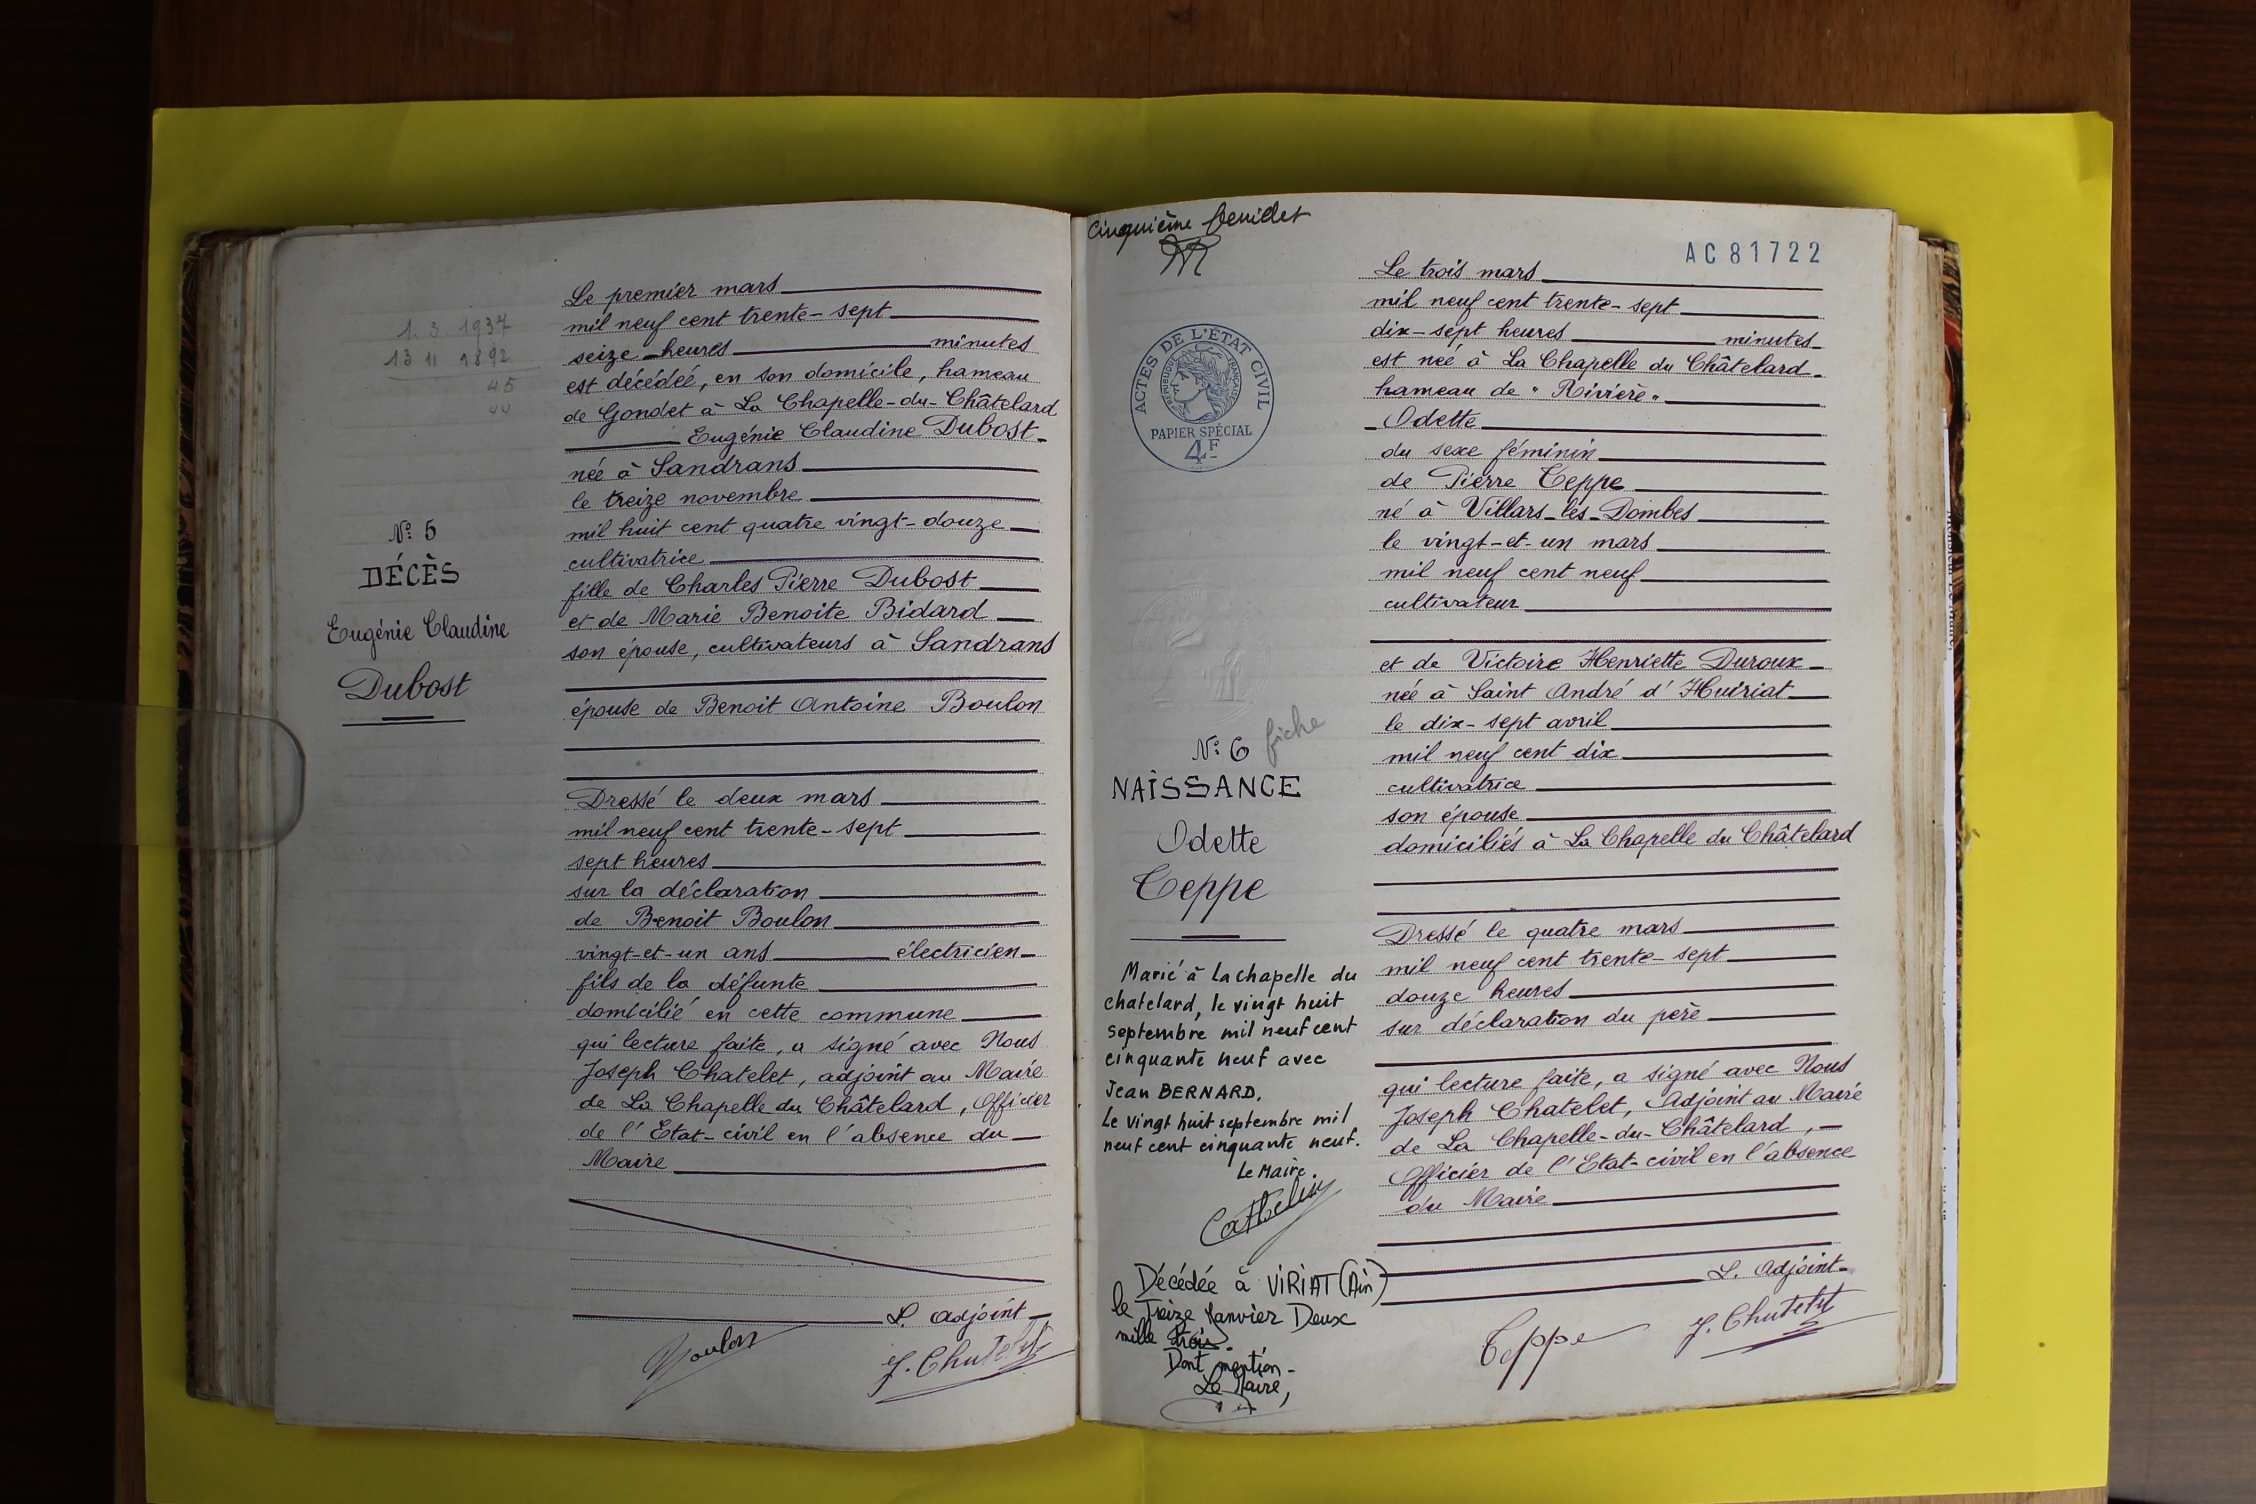 1. 3. 1937
13 11 1892
45
N° 5
DÉCÈS
Eugénie Claudine
Dubost
Le premier mars
mil neuf cent trente-sept
seize heures minutes
est décédée, en son domicile, hameau
de Gondet à La Chapelle-du-Châtelard
Eugénie Claudine Dubost
née à Sandrans
le treize novembre
mil huit cent quatre vingt-douze
cultivatrice
fille de Charles Pierre Dubost
et de Marie Benoite Bidard
son épouse, cultivateurs à Sandrans
épouse de Benoit Antoine Boulon
Dressé le deux mars
mil neuf cent trente-sept
sept heures
sur la déclaration
de Benoit Boulon
vingt-et-un ans électricien
fils de la défunte
domicilié en cette commune
qui lecture faite, a signé avec Nous
Joseph Chatelet, adjoint au Maire
de La Chapelle du Châtelard, Officier
de l'Etat-civil en l'absence du
Maire
L. adjoint
Boulon
J. Chatelet
Cinquième feuillet
ACTES DE L'ÉTAT CIVIL
RÉPUBLIQUE FRANÇAISE
PAPIER SPÉCIAL
4F
N° 6 fiche
NAISSANCE
Odette
Teppe
Marié à La chapelle du
chatelard, le vingt huit
septembre mil neuf cent
cinquante neuf avec
Jean BERNARD.
Le vingt huit septembre mil
neuf cent cinquante neuf.
Le Maire
Décédée à VIRIAT (Ain)
le Treize Janvier Deux
mille trois.
Dont mention -
Le Maire,
AC81722
Le trois mars
mil neuf cent trente-sept
dix-sept heures minutes
est née à La Chapelle du Châtelard
hameau de "Rivière"
Odette
du sexe féminin
de Pierre Teppe
né à Villars-les-Dombes
le vingt-et-un mars
mil neuf cent neuf
cultivateur
et de Victoire Henriette Duroux
née à Saint André d'Huiriat
le dix-sept avril
mil neuf cent dix
cultivatrice
son épouse
domiciliés à La Chapelle du Châtelard
Dressé le quatre mars
mil neuf cent trente-sept
douze heures
sur déclaration du père
qui lecture faite, a signé avec Nous
Joseph Chatelet, Adjoint au Maire
de La Chapelle-du-Châtelard,
Officier de l'Etat-civil en l'absence
du Maire
L. Adjoint
Teppe
J. Chatelet